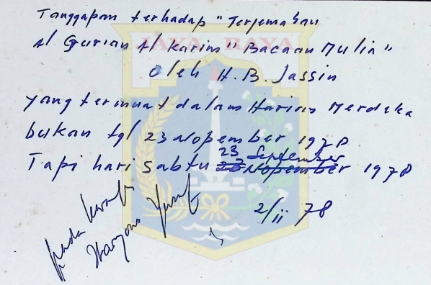 Tanggapan terhadap "Terjemahan
Al Qurian Al Karim "Bacaan Mulia"
oleh H. B. Jassin
yang termuat dalam Harian Merdeka
bukan tgl 23 Nopember 1978
Tapi hari Sabtu 23 September 1978
2/ii 78
JAYA RAYA